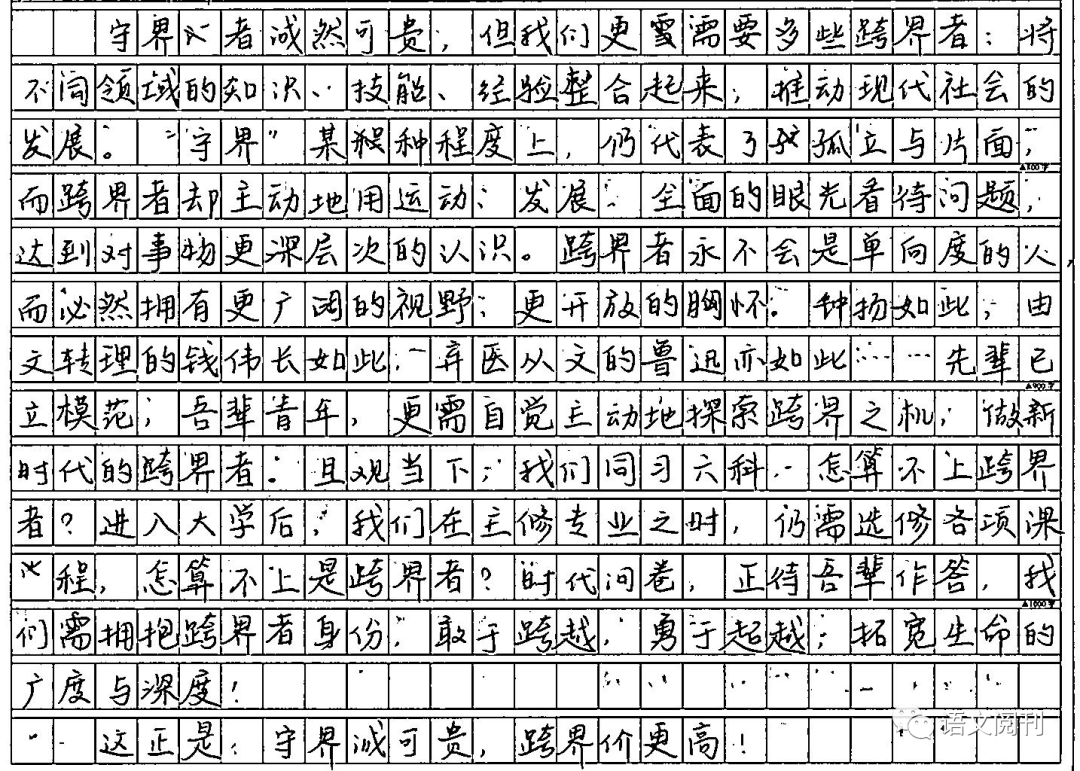 守界者诚然可贵，但我们更需要多些跨界者：将
不同领域的知识、技能、经验整合起来，推动现代社会的
发展。“守界”某种程度上，仍代表了孤立与片面，
▲800字
而跨界者却主动地用运动、发展、全面的眼光看待问题，
达到对事物更深层次的认识。跨界者永不会是单向度的人，
而必然拥有更广阔的视野，更开放的胸怀。种扬如此，由
文转理的钱伟长如此，弃医从文的鲁迅亦如此……先辈已
▲900字
立模范，吾辈青年，更需自觉主动地探索跨界之机，做新
时代的跨界者。且观当下，我们同习六科，怎算不上跨界
者？进入大学后，我们在主修专业之时，仍需选修各项课
程，怎算不上是跨界者？时代问卷，正待吾辈作答，我
▲1000字
们需拥抱跨界者身份，敢于跨越，勇于起越，拓宽生命的
广度与深度！
这正是：守界诚可贵，跨界价更高！
语文阅刊